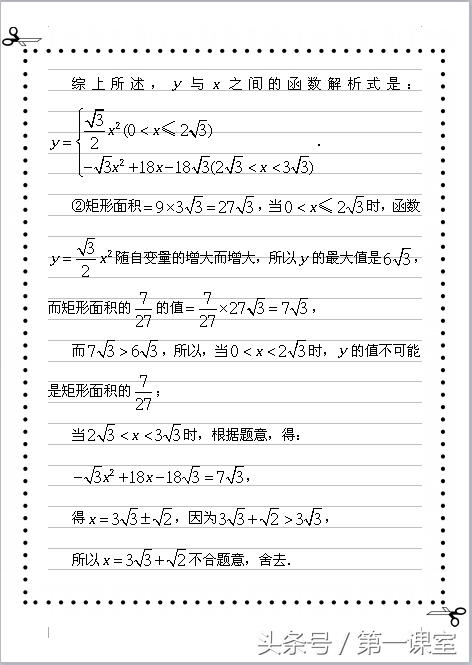 综上所述，y与x之间的函数解析式是：
y={√3/2 x²(0<x≤2√3)
-√3x²+18x-18√3(2√3<x<3√3) .
②矩形面积=9×3√3=27√3,当0<x≤2√3时,函数
y=√3/2 x²随自变量的增大而增大,所以y的最大值是6√3,
而矩形面积的7/27的值=7/27×27√3=7√3,
而7√3>6√3,所以,当0<x<2√3时,y的值不可能
是矩形面积的7/27;
当2√3<x<3√3时,根据题意,得:
-√3x²+18x-18√3=7√3,
得x=3√3±√2,因为3√3+√2>3√3,
所以x=3√3+√2不合题意,舍去.
头条号/第一课室